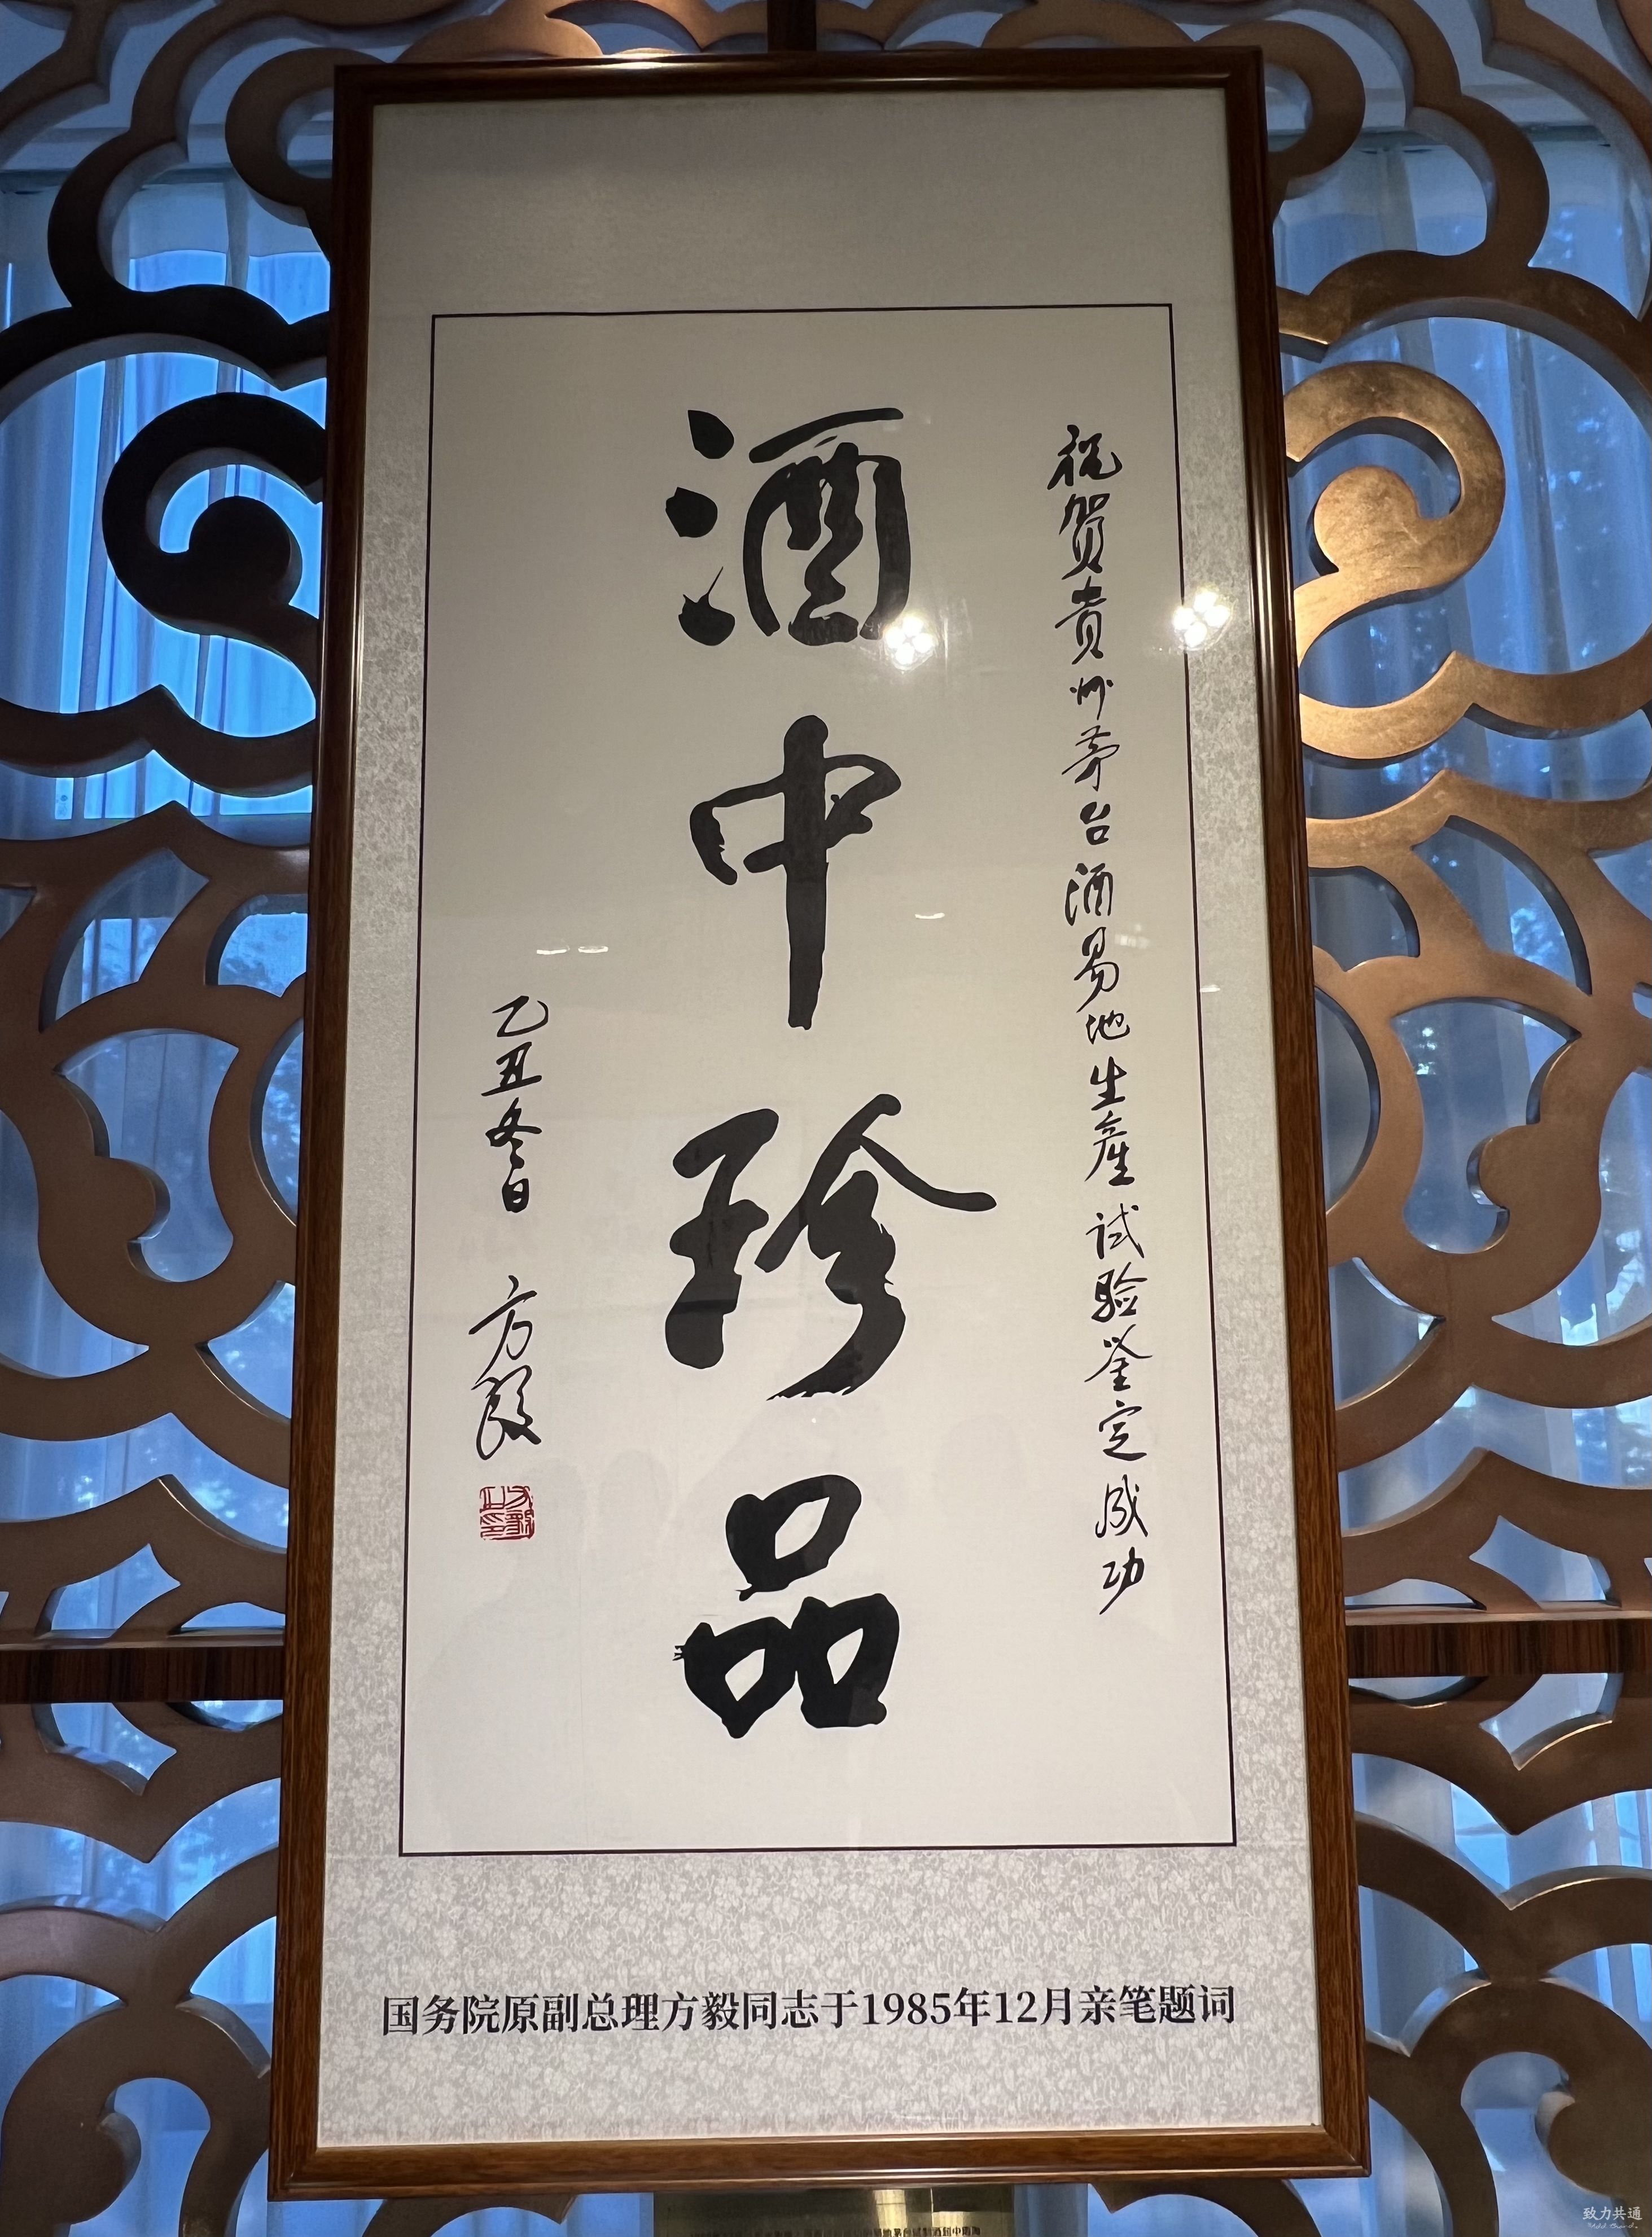 祝贺贵州茅台酒易地生產试验鉴定成功
酒中珍品
乙丑冬日 方毅
国务院原副总理方毅同志于1985年12月亲笔题词
致力共通